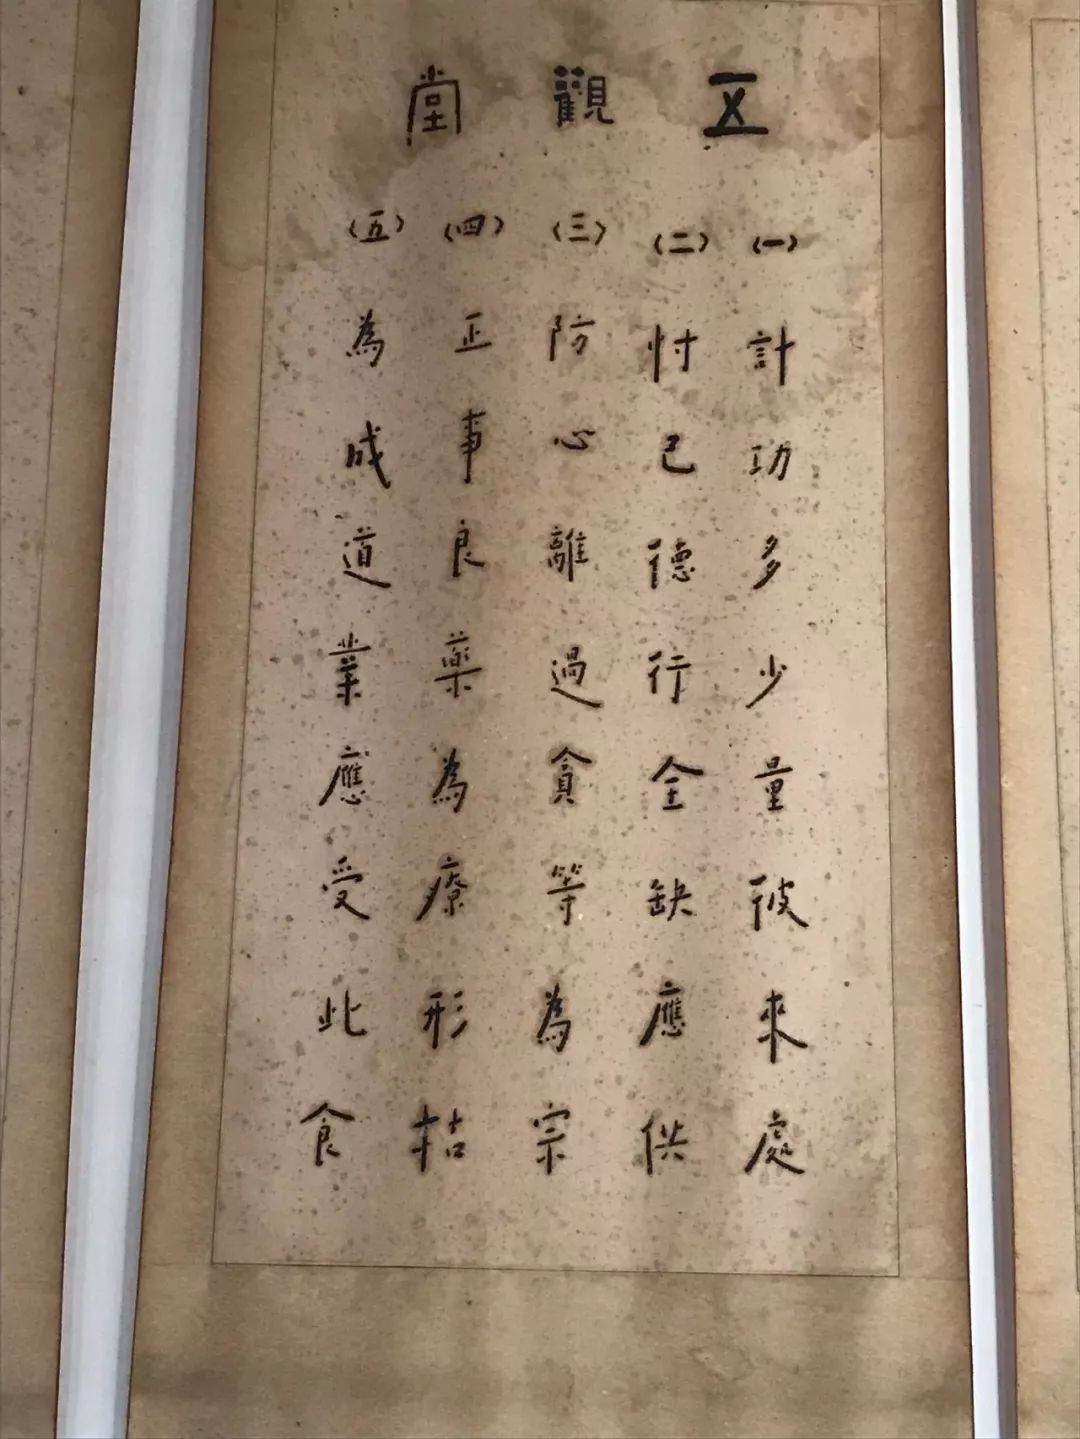 五觀堂
（一）計功多少量彼來處
（二）忖己德行全缺應供
（三）防心離過貪等為宗
（四）正事良藥為療形枯
（五）為成道業應受此食